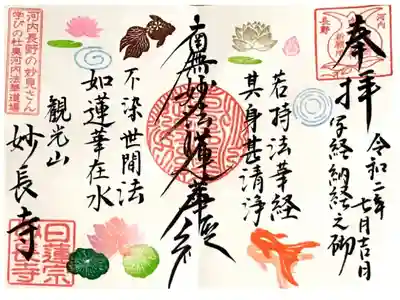 河内
長野
令和二年七月吉日
奉拝
写経納経之砌
若持法華経
其身甚清浄
南無妙法蓮華経
不染世間法
如蓮華在水
観光山
妙長寺
河内長野の妙見さん
学びの杜奥河内法華道場
日蓮宗
妙長寺